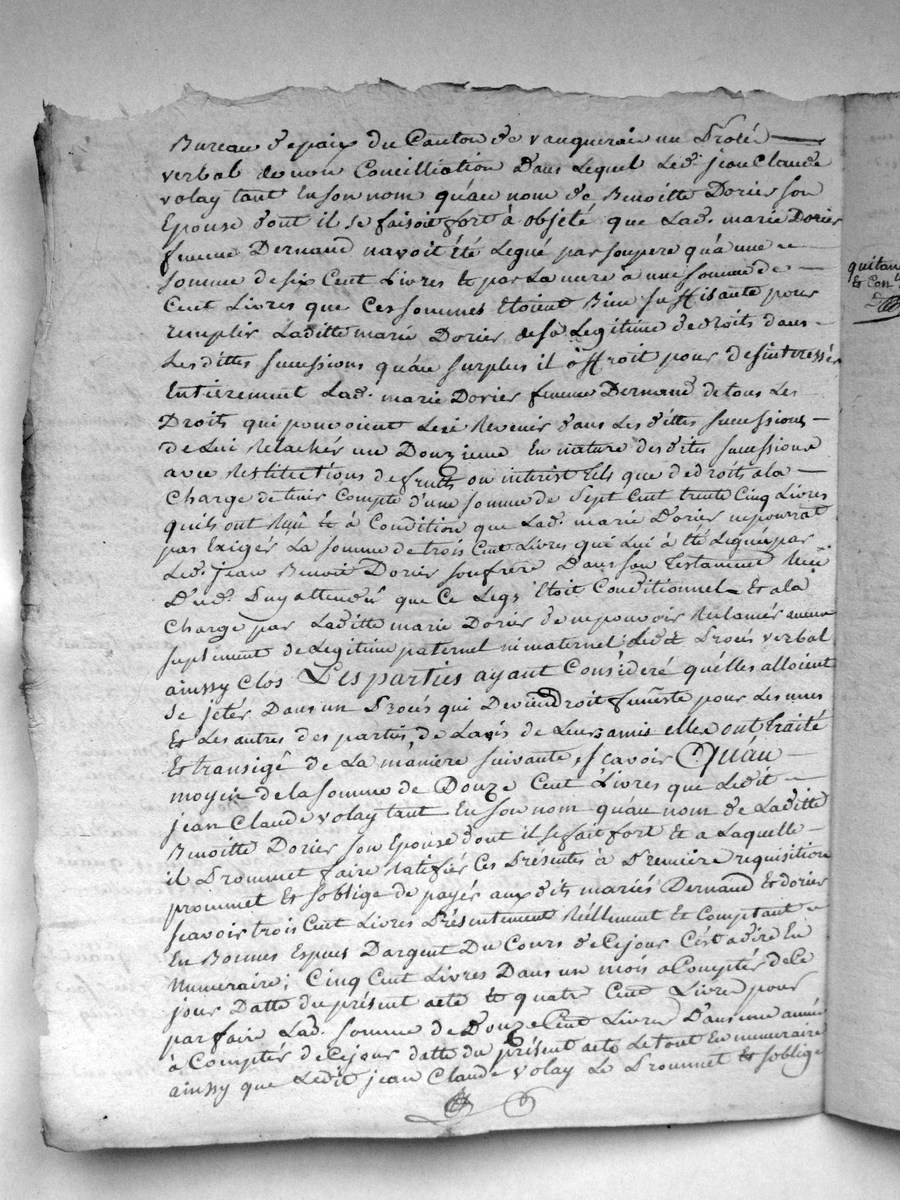 Bureau de paix du Canton de vaugneraie un Procés
verbal de non Conciliation dans Lequel Led. jean Claude
volay tant En son nom qu'au nom de Benoitte Dorier son
Epouse dont il se faisoit fort à objeté que Lad. marie Dorier
femme Bernand navoit été Legué par son pere qu'a une
somme de six Cent Livres & par La mere a une somme de
Cent Livres que Ces sommes Etoient Bien suffisante pour
remplir Laditte marie Dorier de sa Legitime de droits dans
Les dittes sucessions qu'au surplus il offroit pour desinteresser
Entierement Lad. marie Dorier femme Bernand de tous Les
Droits qui pouvoient Lui Revenir dans Les dittes sucessions
de Lui Relachér un Douzieme En nature des dites sucessions
avec Restitutions de fruits ou interest tels que de droits a la
Charge de tenir Compte d'une somme de Sept Cent trente Cinq Livres
quils ont Reçu & à Condition que Lad. marie Dorier ne pourrat
pas Exigér La somme de trois Cent Livres qui Lui à été Leguée par
Led. jean Benoit Dorier son frere Dans son Testament Reçu
D. attendu que Ce Legs Etoit Conditionnel Et a la
Charge par Laditte marie Dorier de ne pouvoir Reclamér aucun
suplement de Legitime paternel ni maternel Ledit Procés verbal
ainssy Clos Les parties ayant Consideré qu'elles alloient
se jetér Dans un Procés qui Deviendroit funeste pour Les unes
Et Les autres des parties de Lavis de Leurs amis elles ont traité
Et transigé de La maniere suivante, scavoir Qu'au
moyen de la somme de Douze Cent Livres que Ledit
jean Claude volay tant En son nom qu'au nom de Laditte
Benoitte Dorier son Epouse dont il se fait fort & a Laquelle
il Prommet faire Ratifiér Ces Présentes à Premiere requisition
prommet Et soblige de payér aux dits mariés Bernand Et dorier
scavoir trois Cent Livres Présentement Réellement Et Comptant
En Bonnes Especes Dargent Du Cours de Ce jour C'est a dire En
Numeraire; Cinq Cent Livres Dans un mois a Comptér de Ce
jour Datte du présent acte & quatre Cent Livres pour
parfaire Lad. somme de Douze Cent Livres Dans une année
à Comptér de Ce jour datte du présent acte Le tout En numeraire
ainssy que Ledit jean Claude volay Le Prommet Et soblige
quitan
& Con